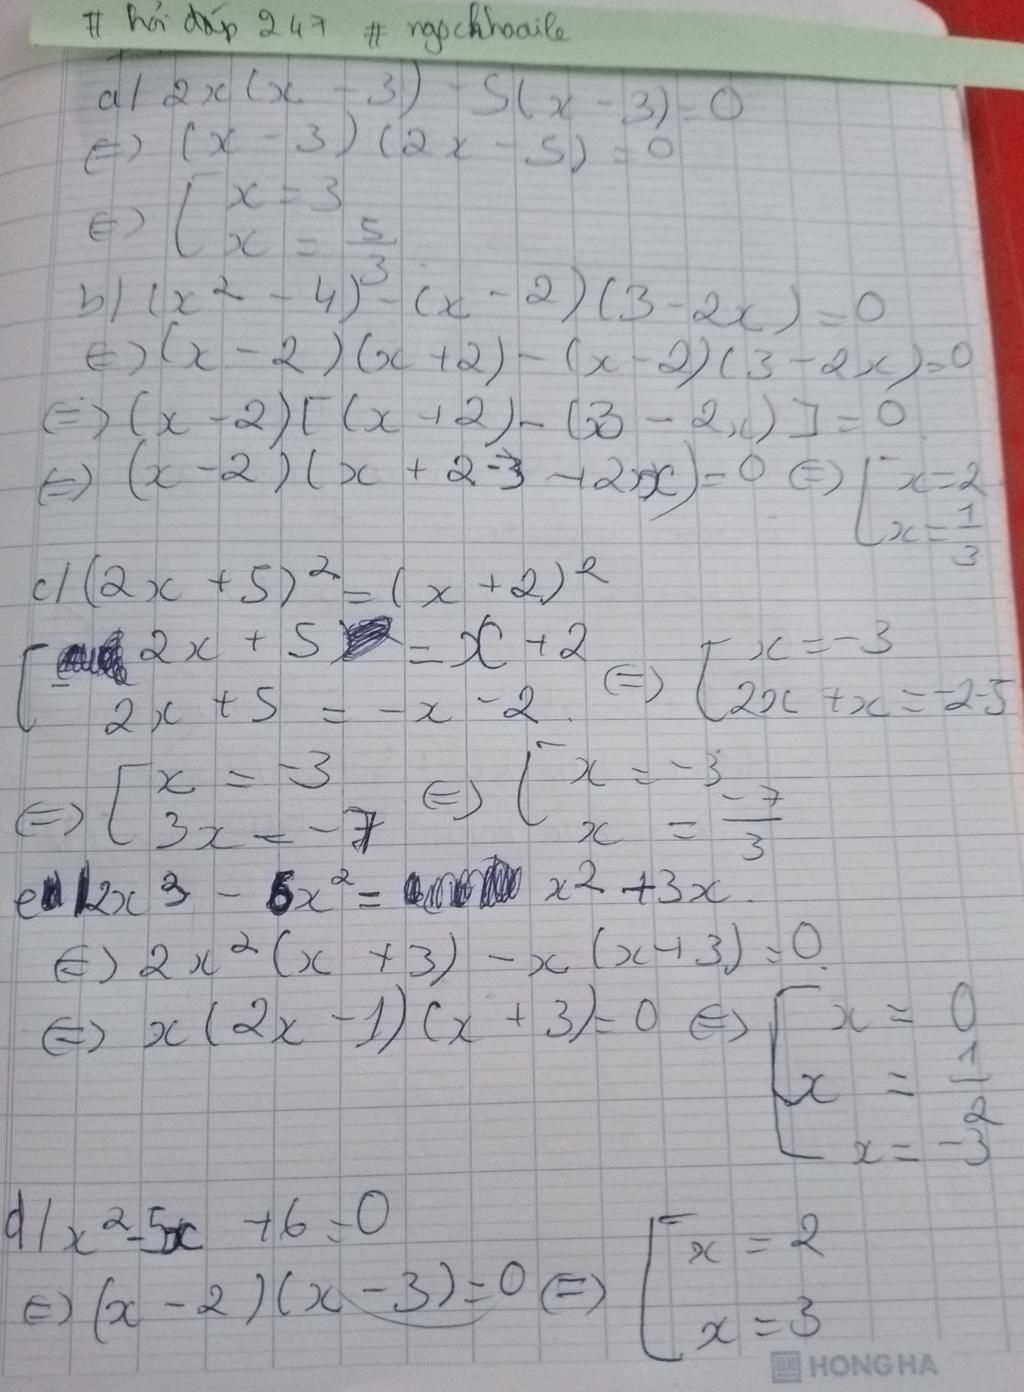 # hỏi đáp 247 # ngọckhoaile
a/ 2x(x - 3) - 5(x - 3) = 0
⇔ (x - 3)(2x - 5) = 0
⇔ [ x = 3
x = 5/3
b/ (x² - 4) - (x - 2)(3 - 2x) = 0
⇔ (x - 2)(x + 2) - (x - 2)(3 - 2x) = 0
⇔ (x - 2)[(x + 2) - (3 - 2x)] = 0
⇔ (x - 2)(x + 2 - 3 + 2x) = 0 ⇔ [ x = 2
x = 1/3
c/ (2x + 5)² = (x + 2)²
[ 2x + 5 = x + 2 ⇔ [ x = -3
2x + 5 = -x - 2 2x + x = -2-5
⇔ [ x = -3 ⇔ [ x = -3
3x = -7 x = -7/3
e/ 2x³ - 5x² = x² + 3x.
⇔ 2x²(x + 3) - x(x + 3) = 0
⇔ x(2x - 1)(x + 3) = 0 ⇔ [ x = 0
x = 1/2
x = -3
d/ x² - 5x + 6 = 0
⇔ (x - 2)(x - 3) = 0 ⇔ [ x = 2
x = 3
HONG HA